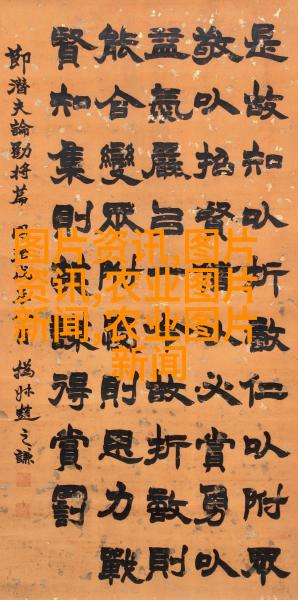 是故知㕥折敵仁㕥附眾
敬㕥招賢㕥必賞勇㕥
益氣嚴㕥一故折敵則
能合變眾附則思力戰
賢知集則英謀得賞罰
節潛夫論勸將篇
撝叔趙之謙
图片资讯,图片
资讯,农业图片
新闻,农业图片
新闻